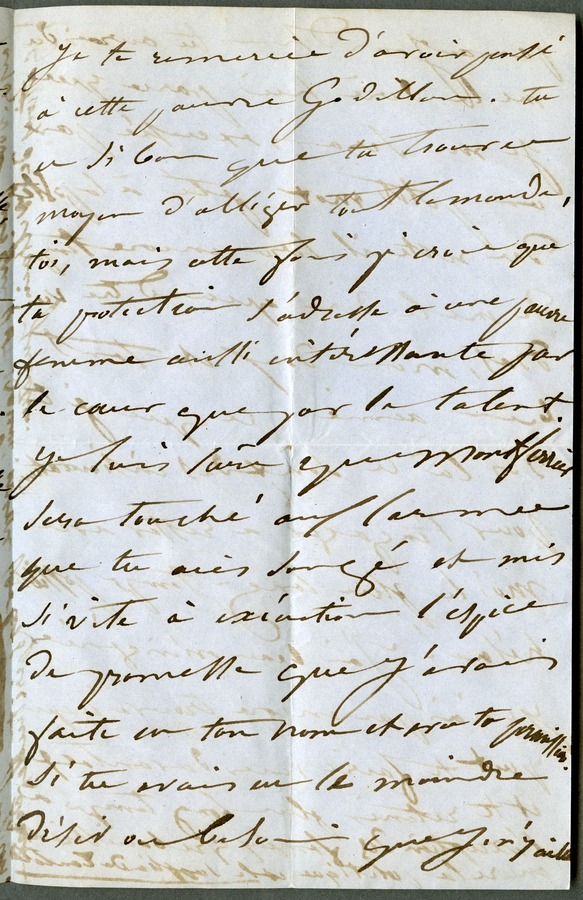 Je te remercie d'avoir pensé
à cette pauvre Godillon. tu
es si bon que tu trouves
moyen d'obliger tout le monde,
toi, mais cette fois je crois que
ta protection s'adresse à une pauvre
femme aussi intéressante par
le cœur que par le talent.
Je suis sûre que Montferrier
sera touché aux larmes
que tu aies songé et mis
si vite à exécution l'espèce
de promesse que j'avais
faite en ton nom et sans ta permission.
Si tu avais eu le moindre
désir ou besoin que j'y aille